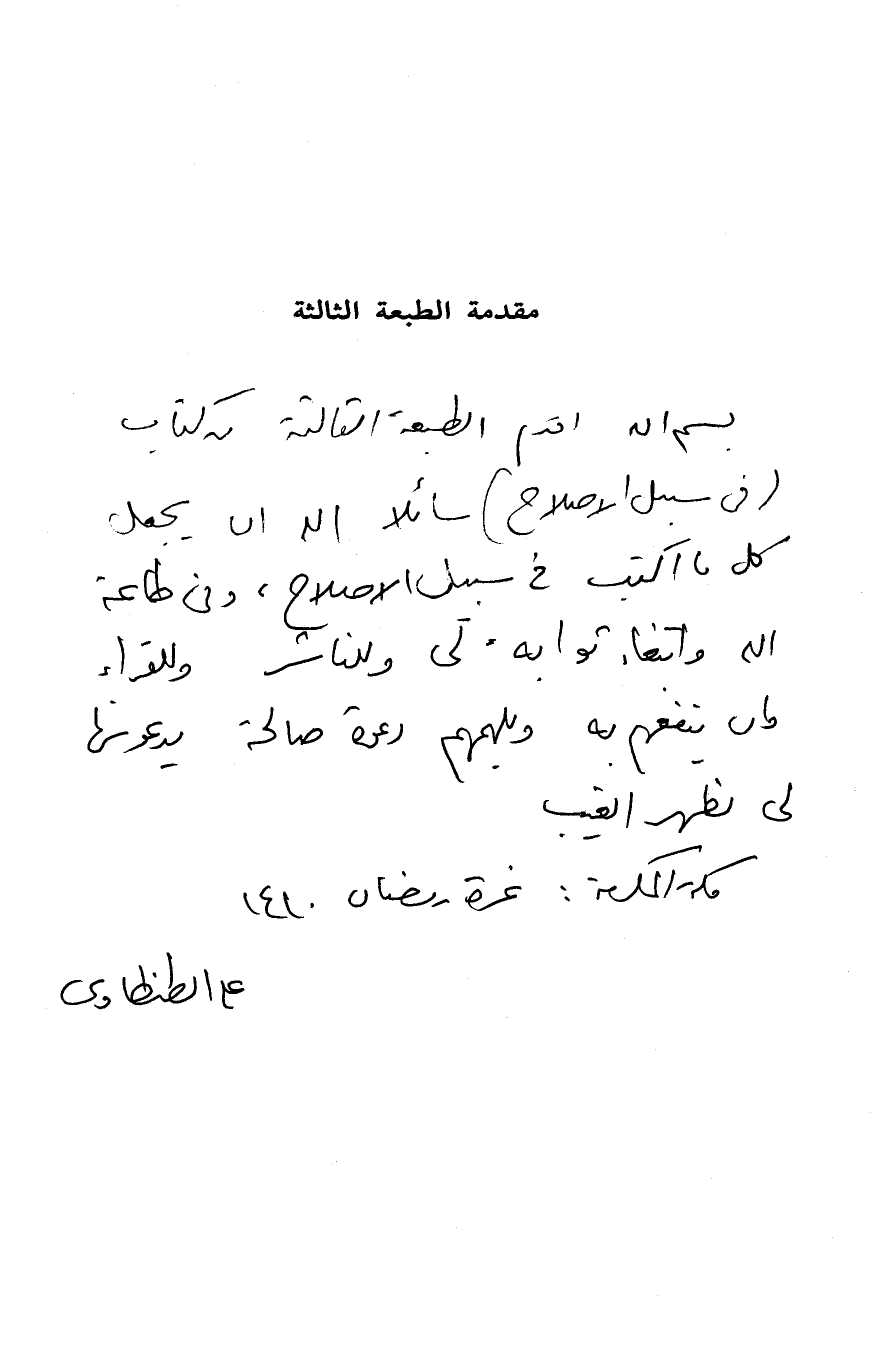 مقدمة الطبعة الثالثة
بسم الله اقدم الطبعة الثالثة من كتاب
(في سبيل الاصلاح) سائلا الله ان يجعل
كل ما اكتب في سبيل الاصلاح، وفي طاعة
الله وابتغاء ثوابه. لي وللناشر وللقراء
وان ينفعهم به ويلهمهم دعوة صالحة يدعون بها
لي بظهر الغيب
مكة المكرمة: غرة رمضان ١٤١٠
علي الطنطاوي